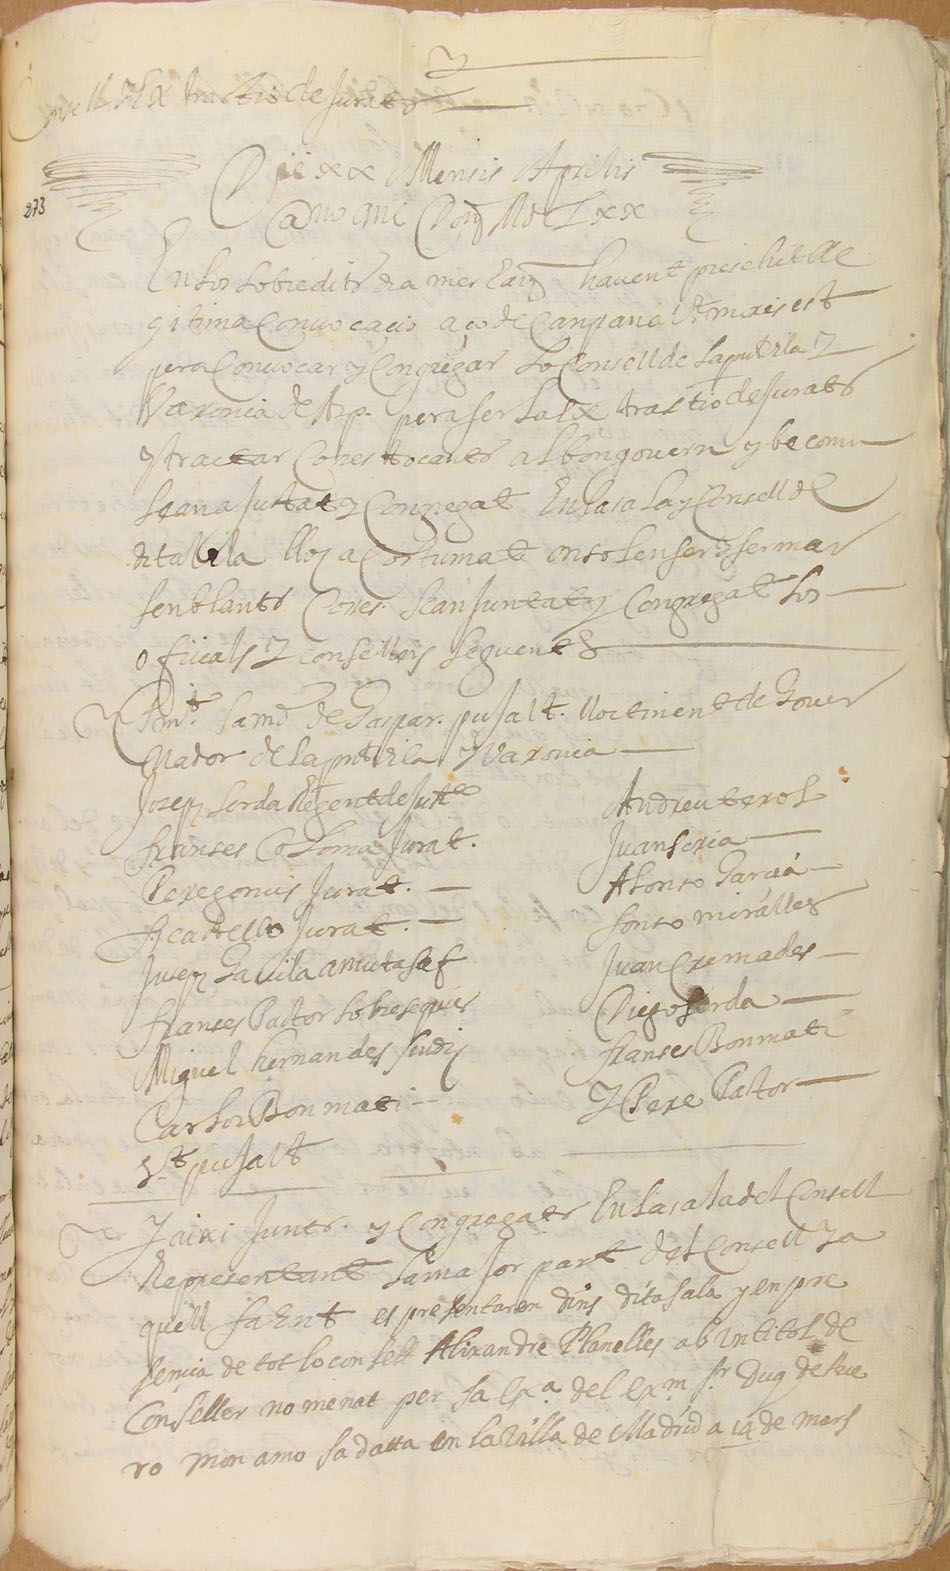 Consell y Extractio de Jurats
Die xx Mensis Aprilis
273
Anno MDCLxx
En los sobredits dia mes e any havent precehit lle
gitima Convocacio a so de Canpana Ut moris est
pera Convocar y Congregar lo Consell de la pnt Vila y
Varonia de Asp. pera fer la Extractio de Jurats
y tractar Coses tocants al bon govern y be comu
se an ajustat y Congregat En la sala y Consell de
dita Vila lloch acostumat on se solen fer y fermar
senblants Coses. se an juntat y Congregat los
oficials y consellers seguents
Primt. lamd de Gaspar pujalt. lloctinent de Gover
Nador de la pnt Vila y Varonia
Josep Serda Regent de Justa
franses Coloma Jurat.
Pere gonis Jurat.
fr castello Jurat.
Jusep Gavila amutasaf
franses Pastor sobresequier
Miguel hernandes sindich
Carlos Bonmati
Vt pujalt
Andreu terol
Juan seria
Alonso Garcia
fonso miralles
Juan Cremades
Diego serda
franses Bonmati
y Pere Pastor
y aixi Junts. y Congregats En la sala del Consell
Representant la major part del Consell y a
quell faent es presentaren dins dita sala y en pre
sencia de tot lo consell Alixandre Planelles ab un titol de
Conseller nomenat per sa Exa. del Exm Sr Duq de Aue
ro mon amo sa datta en la Villa de Madrid a 14 de mars